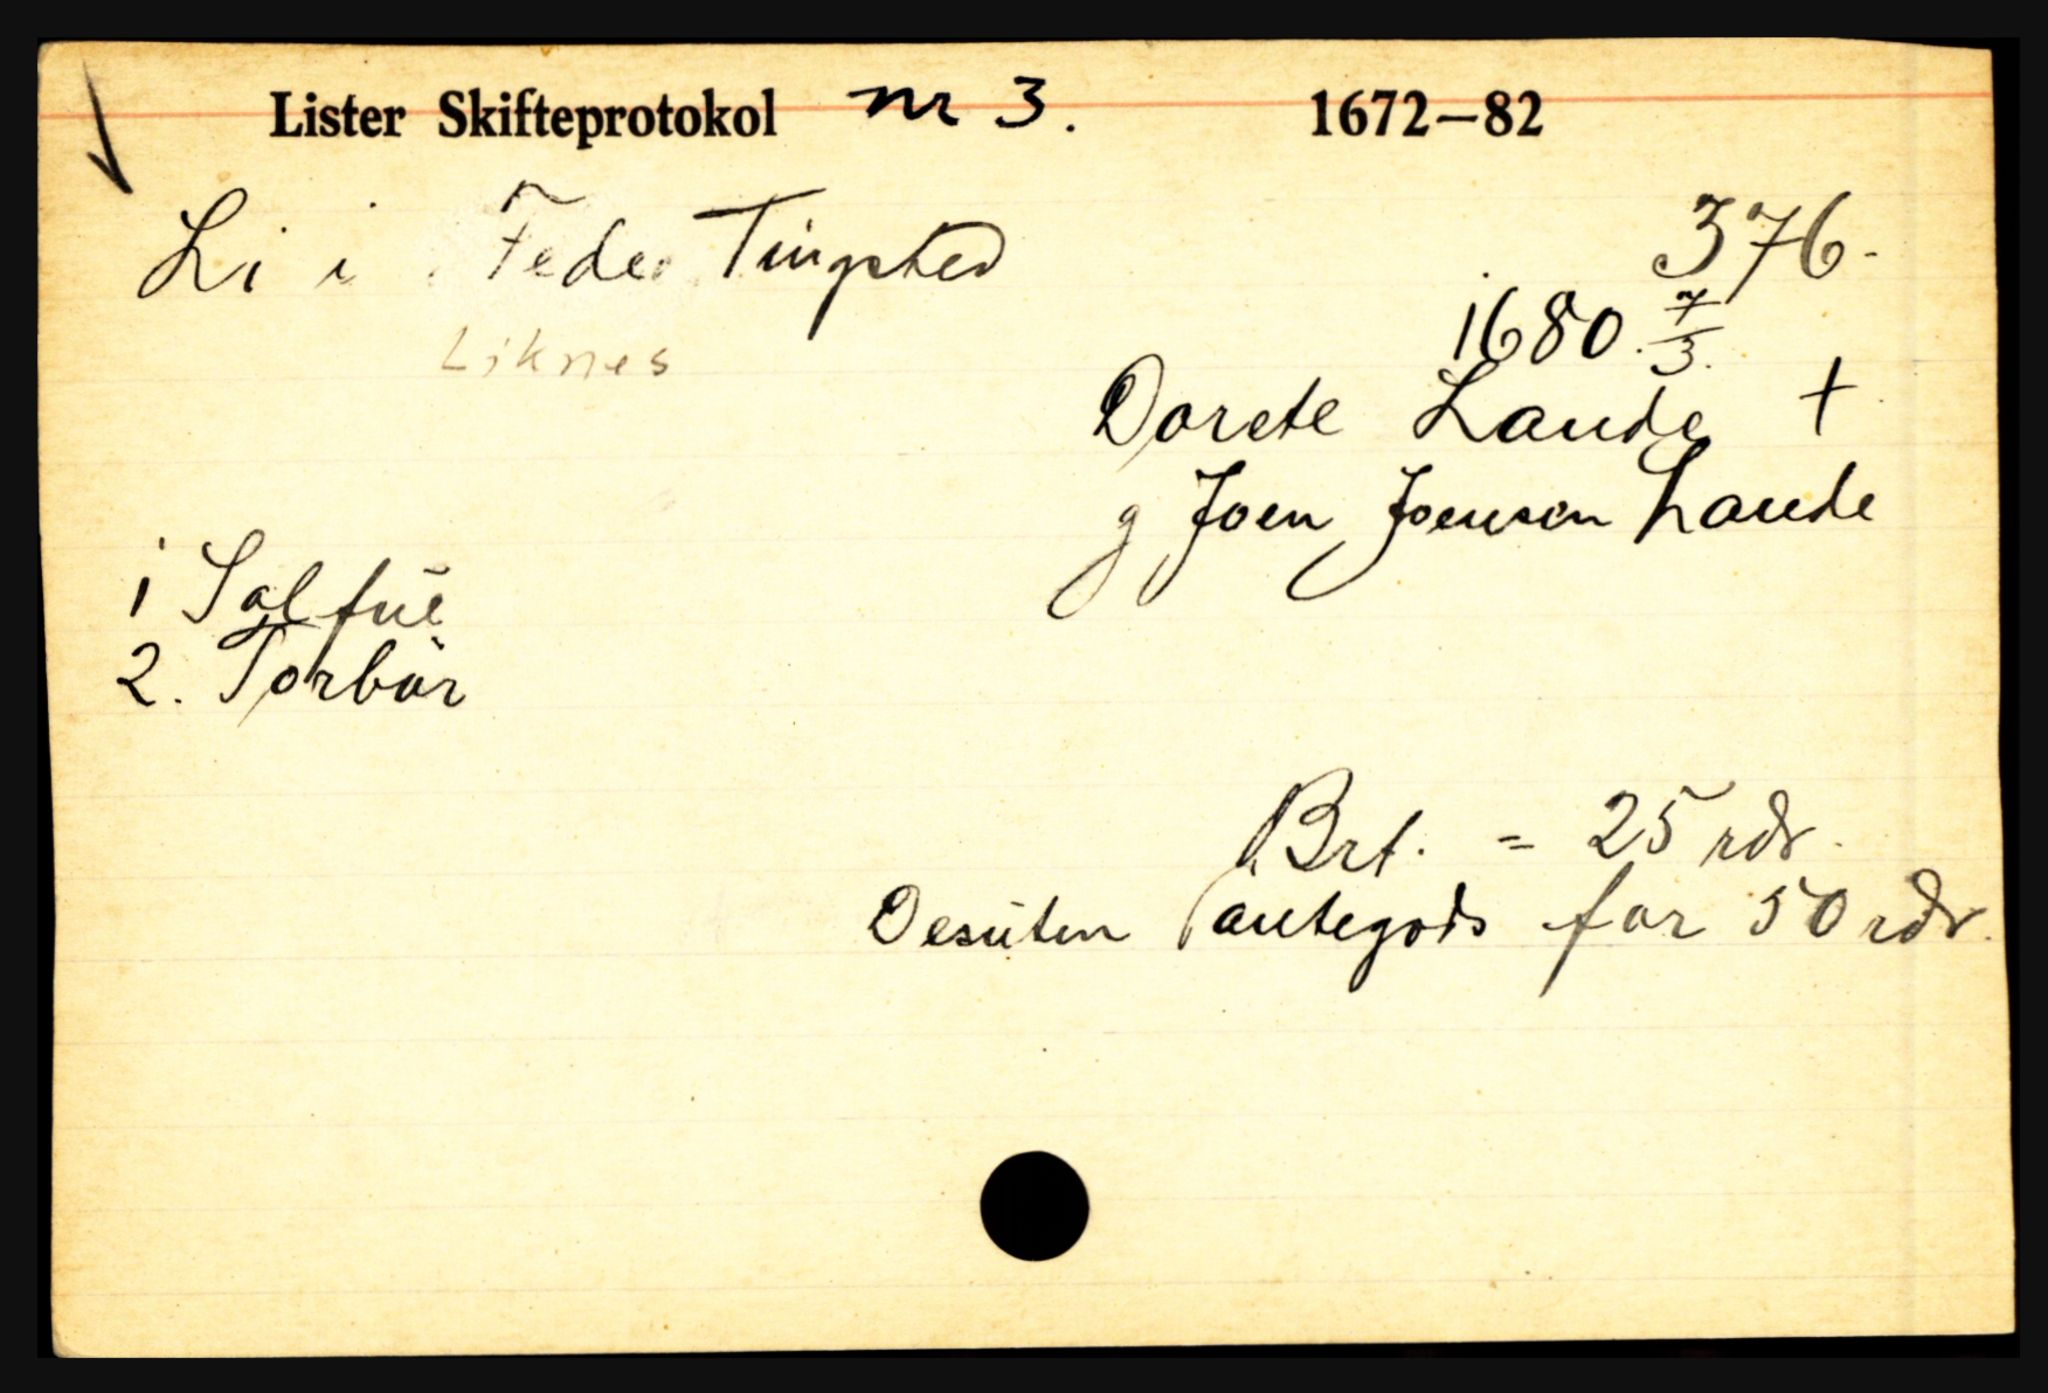 Lister Skifteprotokol nr 3. 1672–82
Li i Feder Tingsted
376.
Liknes
1680. 7/3.
Dorete Lande †
g Joen Joensen Lande
1 Salfue
2. Torbor
Brt. = 25 rdr.
Desuten Pantegods for 50 rdr.